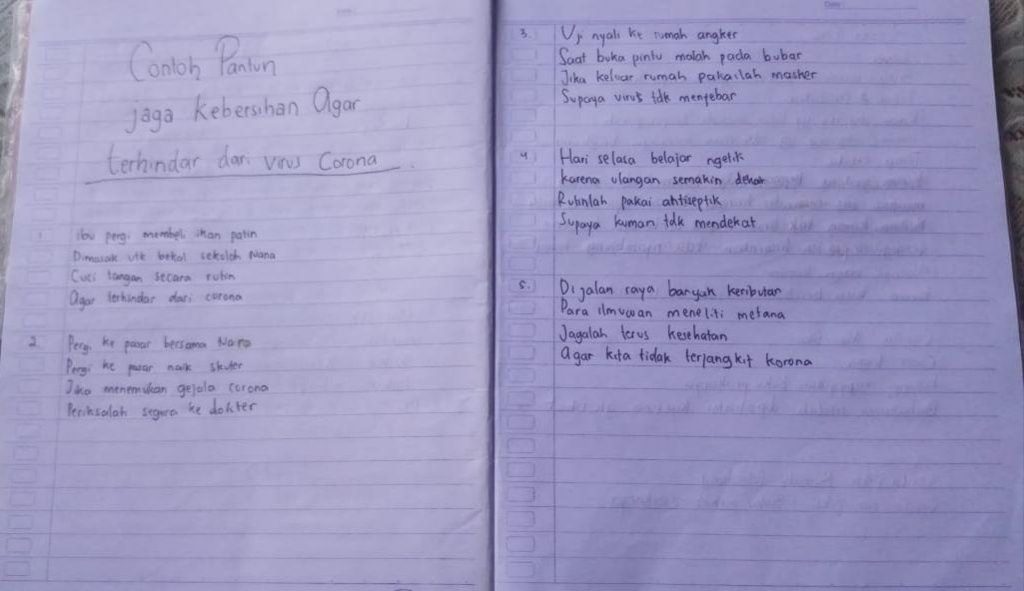 Contoh Pantun
jaga Kebersihan Agar
terhindar dari virus Corona
1. ibu pergi membeli ikan patin
Dimasak utk bekal sekolah Nana
Cuci tangan secara rutin
Agar terhindar dari corona
2. Pergi ke pasar bersama Nana
Pergi ke pasar naik skuter
Jika menemukan gejala corona
Periksalah segera ke dokter
3. Uji nyali ke rumah angker
Saat buka pintu malah pada bubar
Jika keluar rumah pakailah masker
Supaya virus tdk menyebar
4 Hari selasa belajar ngetik
karena ulangan semakin dekat
Rutinlah pakai antiseptik
Supaya kuman tdk mendekat
5. Dijalan raya banyak keributan
Para ilmuwan meneliti metana
Jagalah terus kesehatan
agar kita tidak terjangkit korona